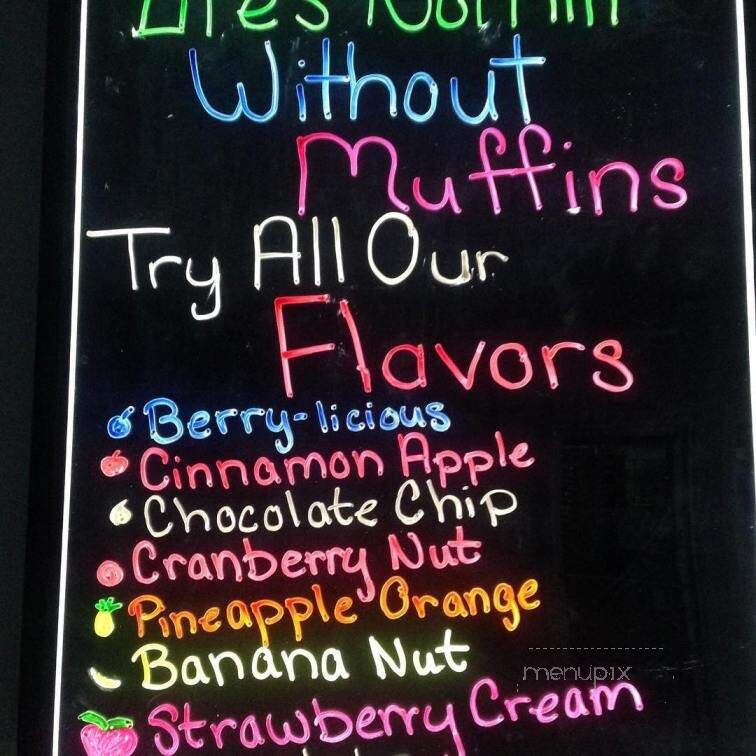 Without
Muffins
Try All Our
Flavors
Berry-licious
Cinnamon Apple
Chocolate Chip
Cranberry Nut
Pineapple Orange
Banana Nut
menupix
Strawberry Cream